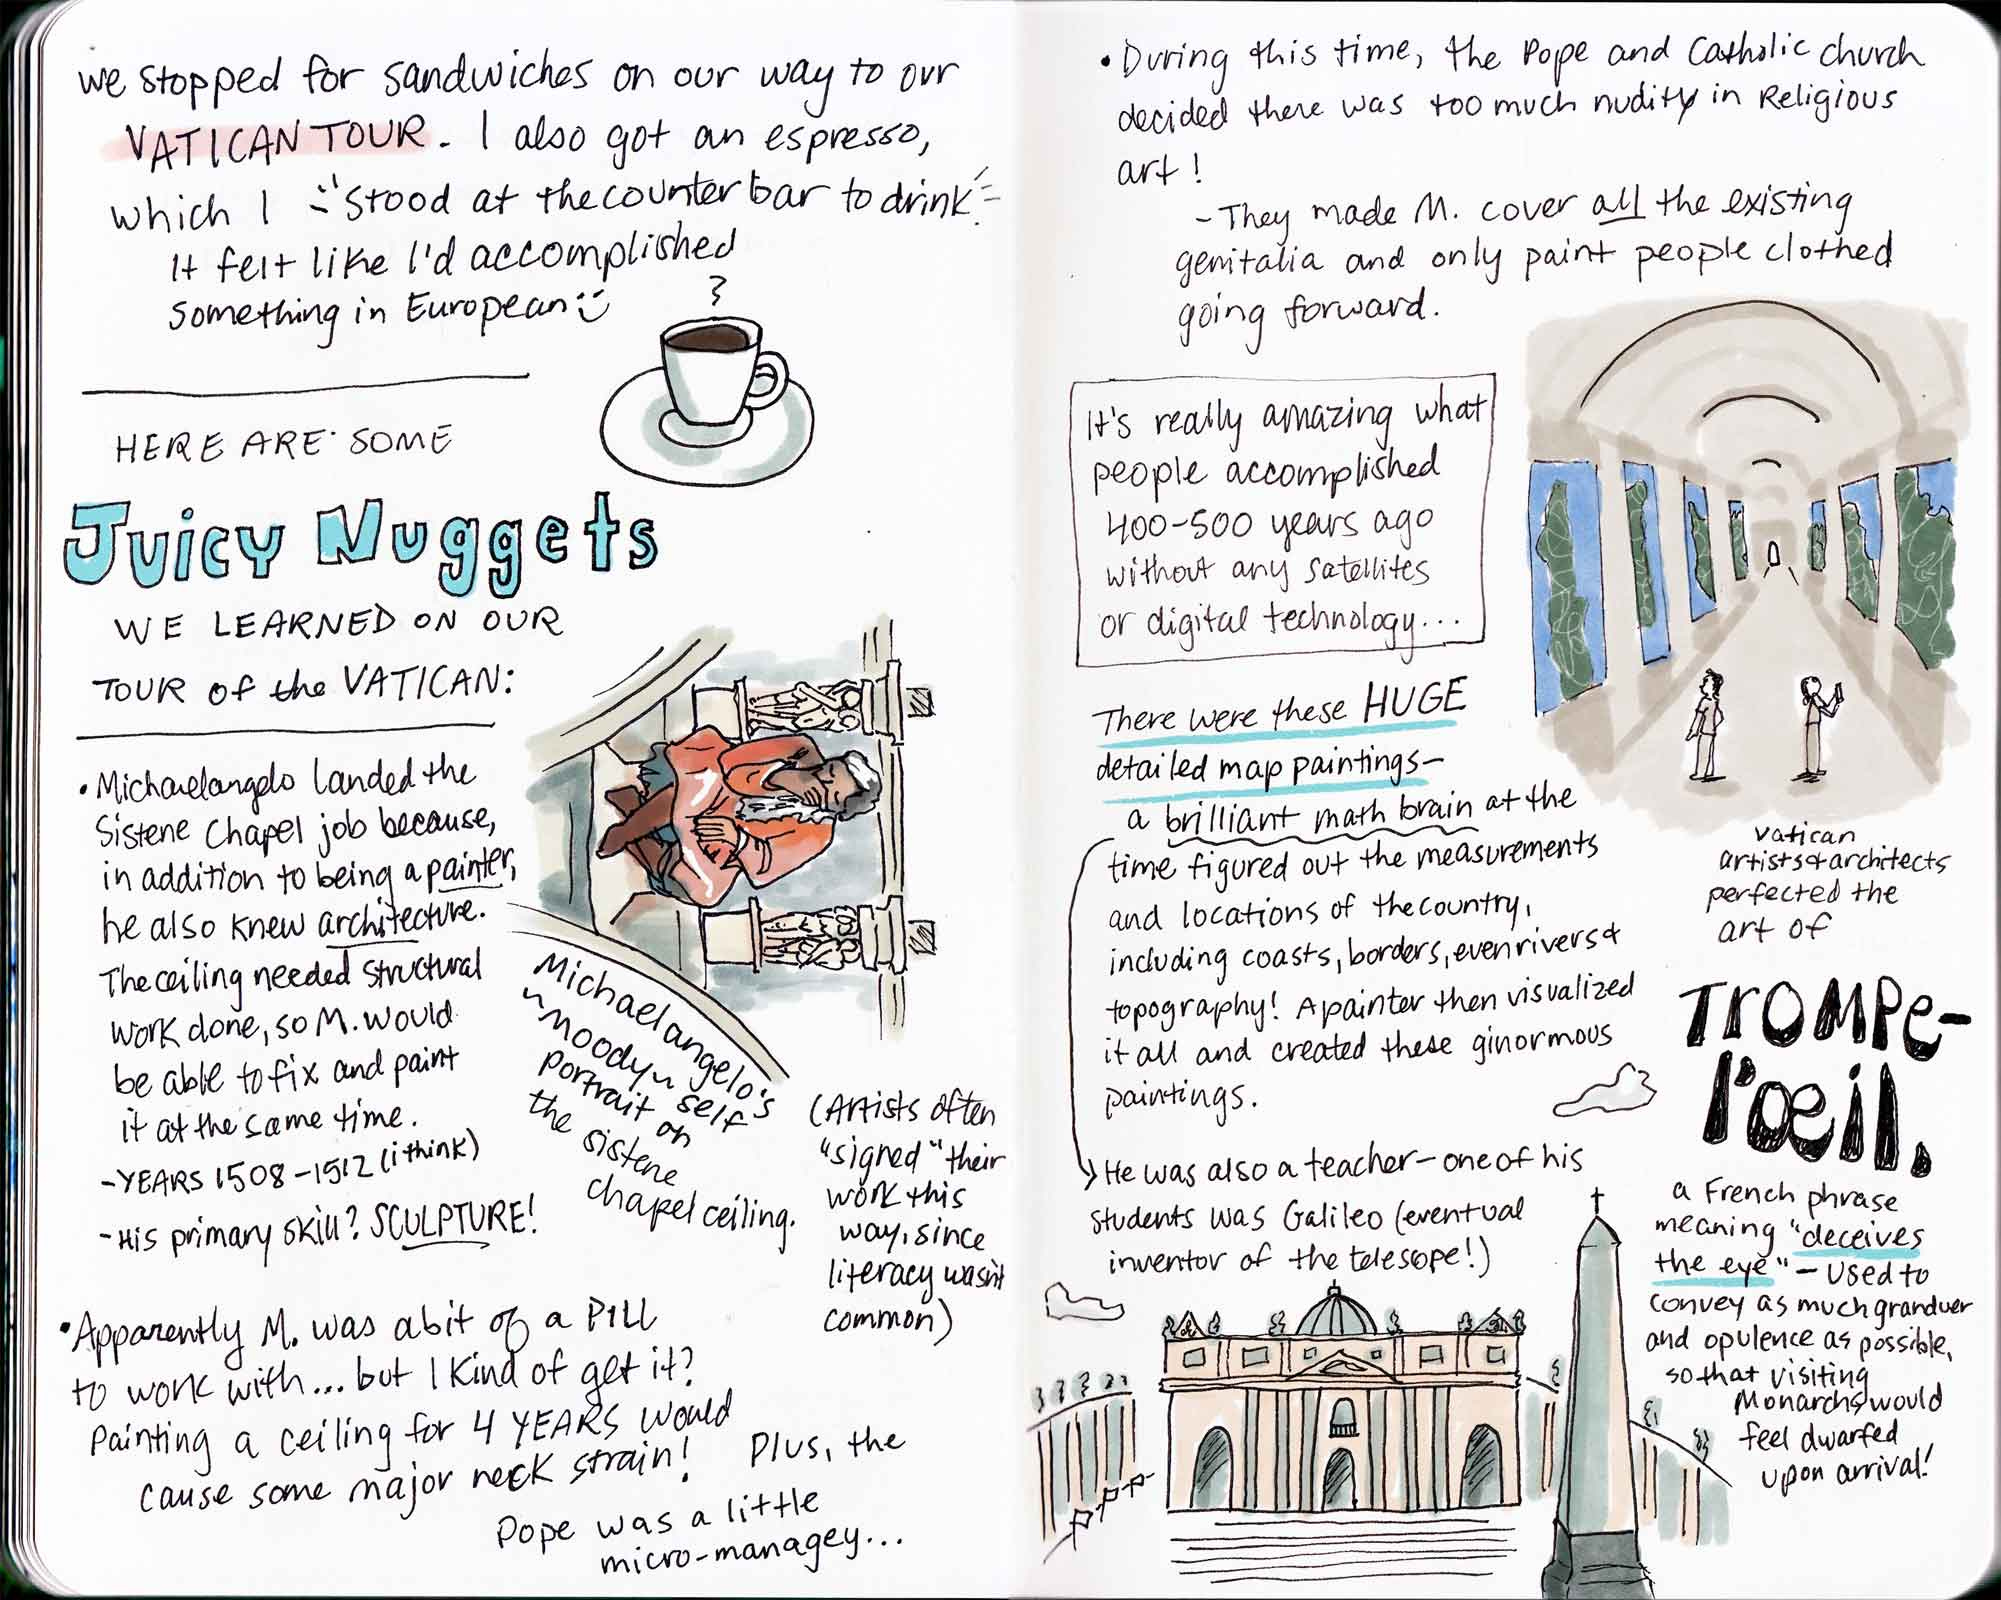 we stopped for sandwiches on our way to our
VATICAN TOUR. I also got an espresso,
which I stood at the counter bar to drink
It felt like I'd accomplished
something in European :)
HERE ARE SOME
Juicy Nuggets
WE LEARNED ON OUR
TOUR of the VATICAN:
• Michaelangelo landed the
Sistene Chapel job because,
in addition to being a painter,
he also knew architecture.
The ceiling needed structural
work done, so M. would
be able to fix and paint
it at the same time.
- YEARS 1508-1512 (i think)
- His primary skill? SCULPTURE!
Michaelangelo's
~moody~ self
portrait on
the sistene
chapel ceiling.
(Artists often
"signed" their
work this
way, since
literacy wasn't
common)
• Apparently M. was a bit of a PILL
to work with... but I kind of get it?
Painting a ceiling for 4 YEARS would
cause some major neck strain! Plus, the
Pope was a little
micro-managey...
• During this time, the Pope and Catholic church
decided there was too much nudity in Religious
art!
- They made M. cover all the existing
genitalia and only paint people clothed
going forward.
It's really amazing what
people accomplished
400-500 years ago
without any satellites
or digital technology...
There were these HUGE
detailed map paintings-
a brilliant math brain at the
time figured out the measurements
and locations of the country,
including coasts, borders, even rivers &
topography! A painter then visualized
it all and created these ginormous
paintings.
He was also a teacher - one of his
students was Galileo (eventual
inventor of the telescope!)
Vatican
artists & architects
perfected the
art of
TROMPE-
l'œil,
a French phrase
meaning "deceives
the eye" - used to
convey as much granduer
and opulence as possible,
so that visiting
Monarchs would
feel dwarfed
upon arrival!